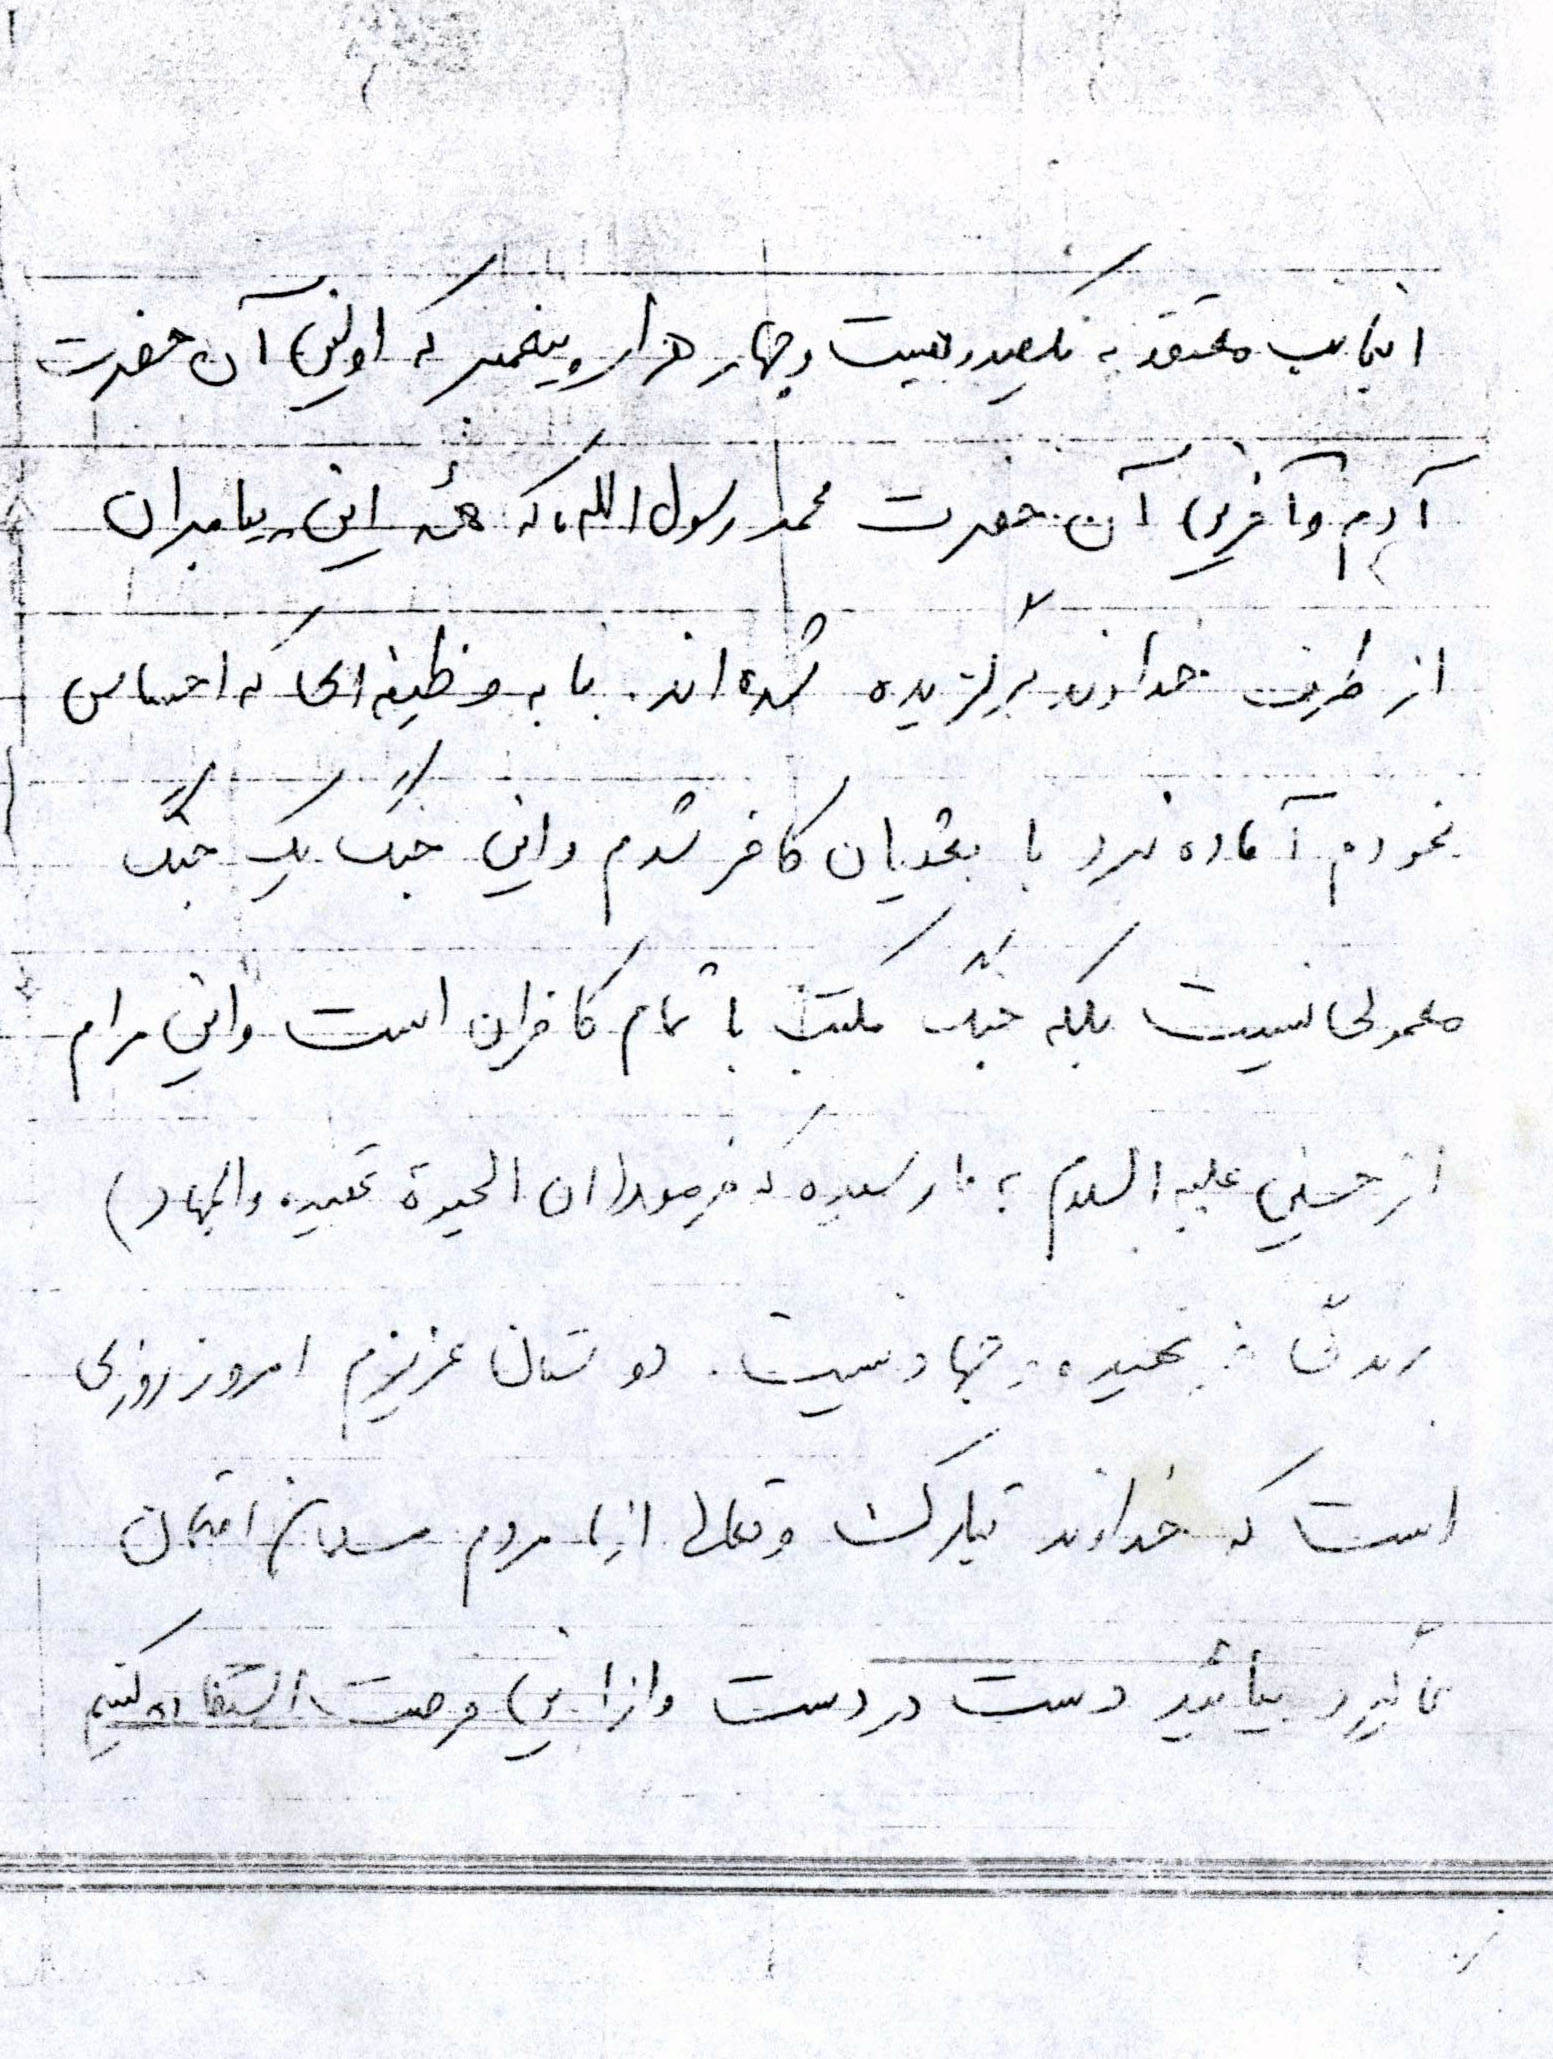 اینجانب معتقد به یکصد و بیست و چهار هزار و پیغمبر که اولین آن حضرت
آدم و آخرین آن حضرت محمد رسول الله که همهٔ این پیامبران
از طرف خداوند برگزیده شده اند. بنا به وظیفه ای که احساس
نمودم آماده نبرد با بعثیان کافر شدم و این جنگ یک جنگ
معمولی نیست بلکه جنگ مکتب با تمام کافران است و این مرام
از حسین علیه السلام به ما رسیده که فرمود (ان الحیوة عقیده والجهاد)
عقیده و جهاد نیست. دوستان عزیزم امروز روزی
است که خداوند تبارک و تعالی از ما مردم مسلمان امتحان
بیائید دست در دست و از این فرصت استفاده کنیم